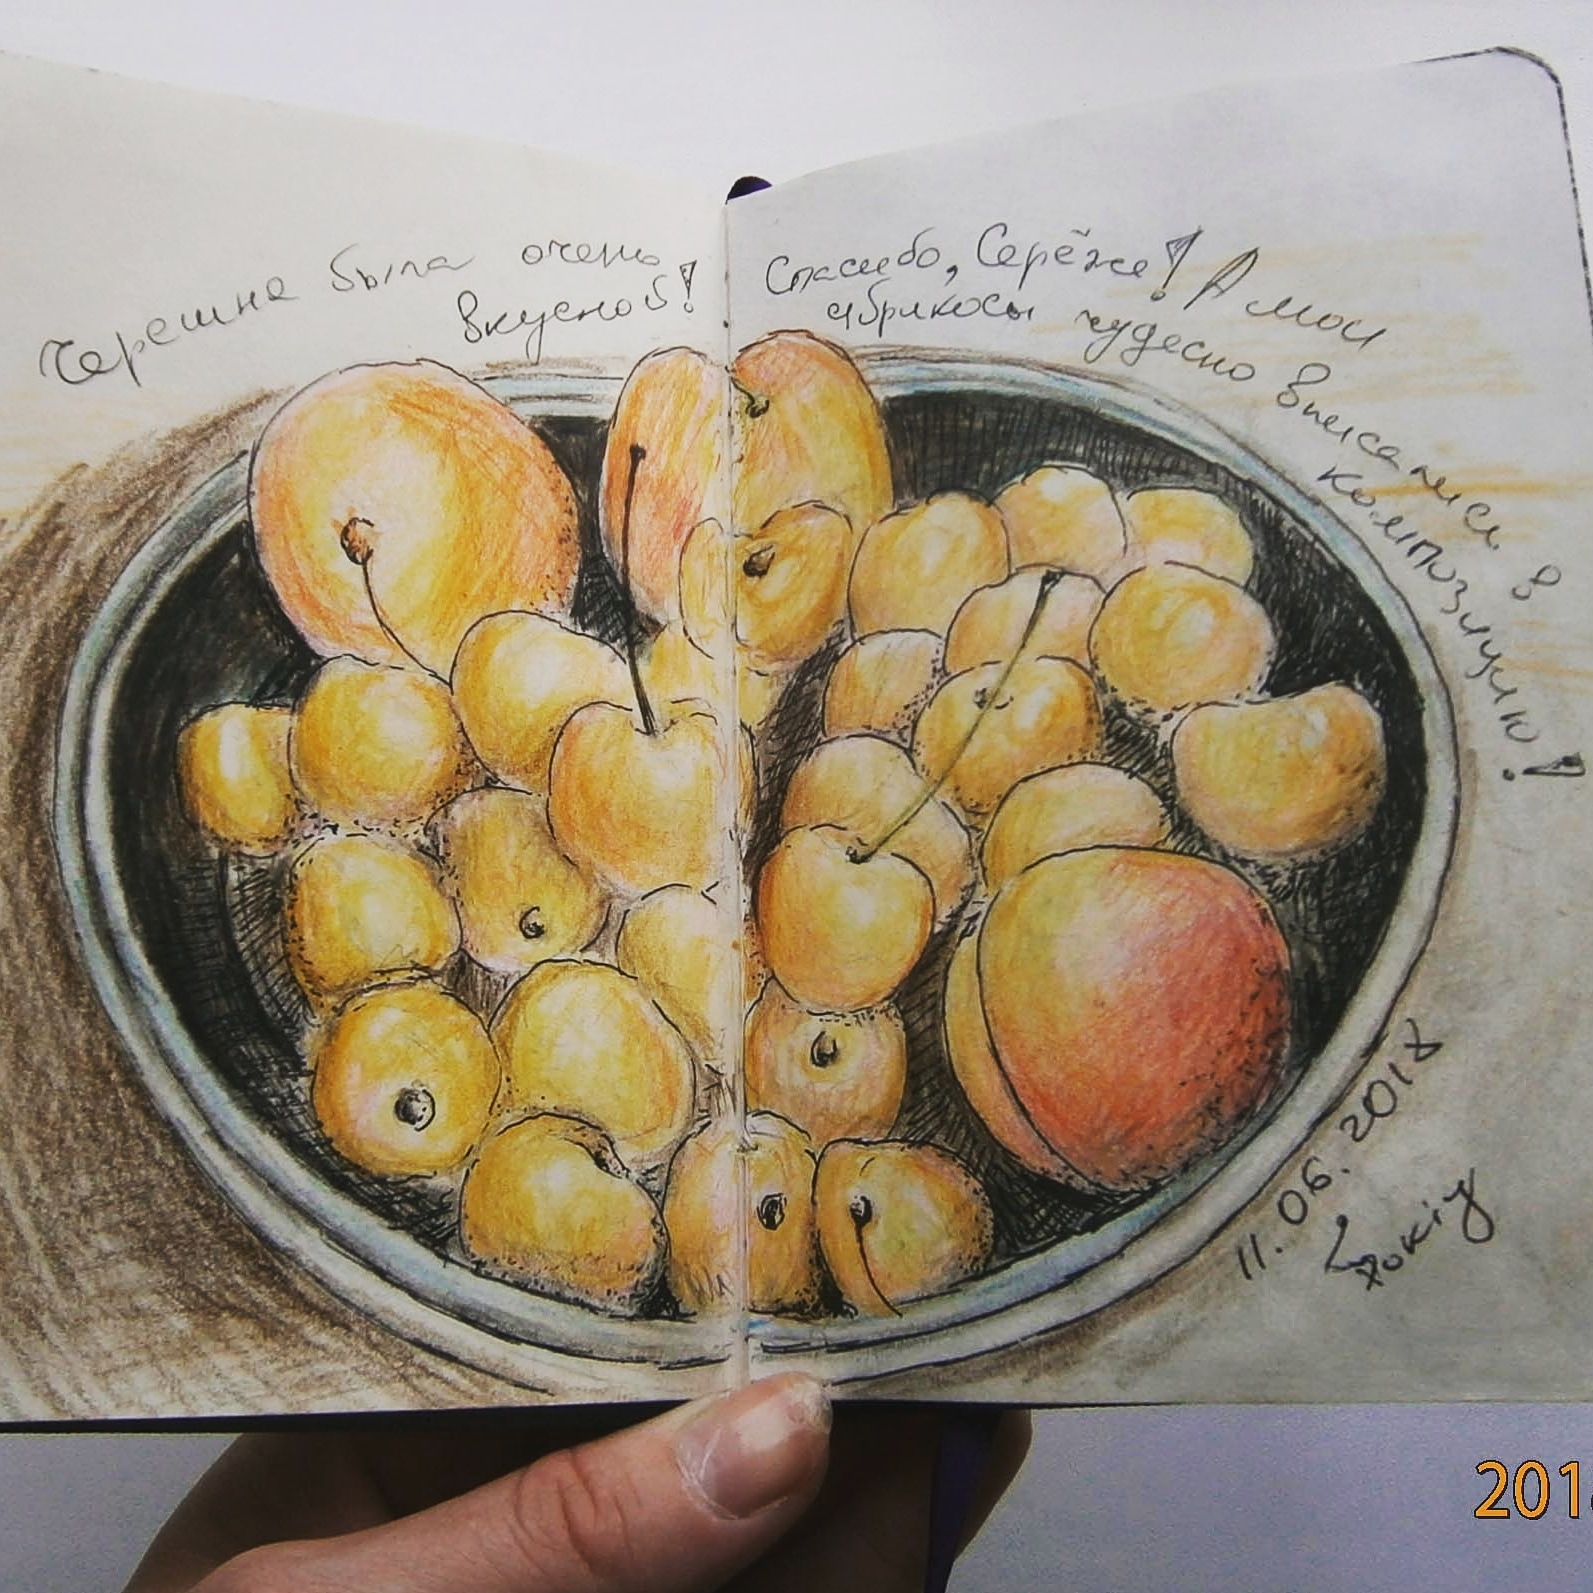 Черешня была очень
вкусной!
Спасибо, Серёже! А мои
абрикосы чудесно вписались в
композицию!
11.06.2018
201